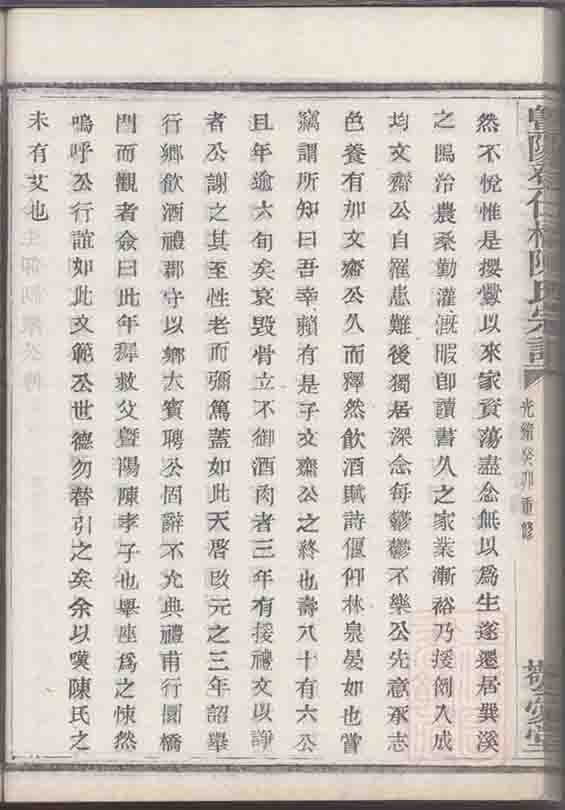 暨陽 陳氏宗譜 光緒癸卯重修
然不悅惟是攖釁以來家資蕩盡念無以為生遂遷居巽溪
之鳴治農桑勤灌溉暇卽讀書久之家業漸裕乃援例入成
均文齋公自罹患難後獨居深念每鬱鬱不樂公先意承志
色養有加文齋公久而釋然飲酒賦詩偃仰林泉晏如也嘗
竊謂所知曰吾幸賴有是子文齋公之終也壽八十有六公
且年逾六旬矣哀毀骨立不御酒肉者三年有援禮文以諍
者公謝之其至性老而彌篤蓋如此天啓改元之三年詔舉
行鄉飲酒禮郡守以鄉大賓聘公固辭不允典禮甫行圜橋
門而觀者僉曰此年穉救父暨陽陳孝子也舉座為之悚然
嗚呼公行誼如此文範公世德勿替引之矣余以嘆陳氏之
未有艾也